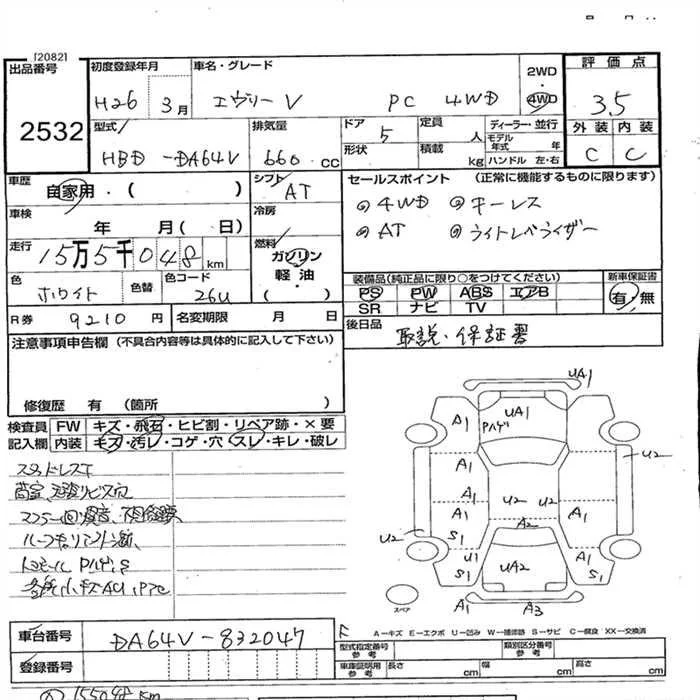 120821
出品番号
2532
初度登録年月
H26 3月
車名・グレード
エヴリーV PC 4WD
2WD
・
4WD
評価点
3.5
外装 内装
C C
型式
HBD-DA64V
排気量
660 cc
ドア 5
形状
定員 人
積載 kg
ディーラー・並行
モデル年式 年
ハンドル 左・右
車歴 自家用・( )
車検 年 月( 日)
走行 15万5千048km
色 ホワイト 色替
色コード 26U
シフト
AT
冷房
燃料
ガソリン
軽油
( )
セールスポイント (正常に機能するものに限ります)
◎4WD ◎キーレス
◎AT ◎ライトレベライザー
装備品(純正品に限り○をつけてください)
PS PW ABS エアB
SR ナビ TV
新車保証書
有・無
R券 9210円
名変期限 月 日
後日品
取説・保証書
注意事項申告欄(不具合内容等は具体的に記入して下さい)
修復歴 有 (箇所 )
検査員 FW キズ・飛石・ヒビ割・リペア跡・×要
記入欄 内装 キズ・汚レ・コゲ・穴・スレ・キレ・破レ
スタッドレスT
UA1
A1 UA1
Pハゲ
A1 A1
U2 U2
U2
A1 A2 A1
U2 S1 S1
U1
S1 UA2 S1
A1 A3
スペア
A-キズ E-エクボ U-凹み W-補修跡 S-サビ C-腐食 XX-交換済
車台番号 DA64V-832047
登録番号
型式指定番号
参考
類別区分番号
参考
車庫証明用
参考
長さ cm 幅 cm 高さ cm